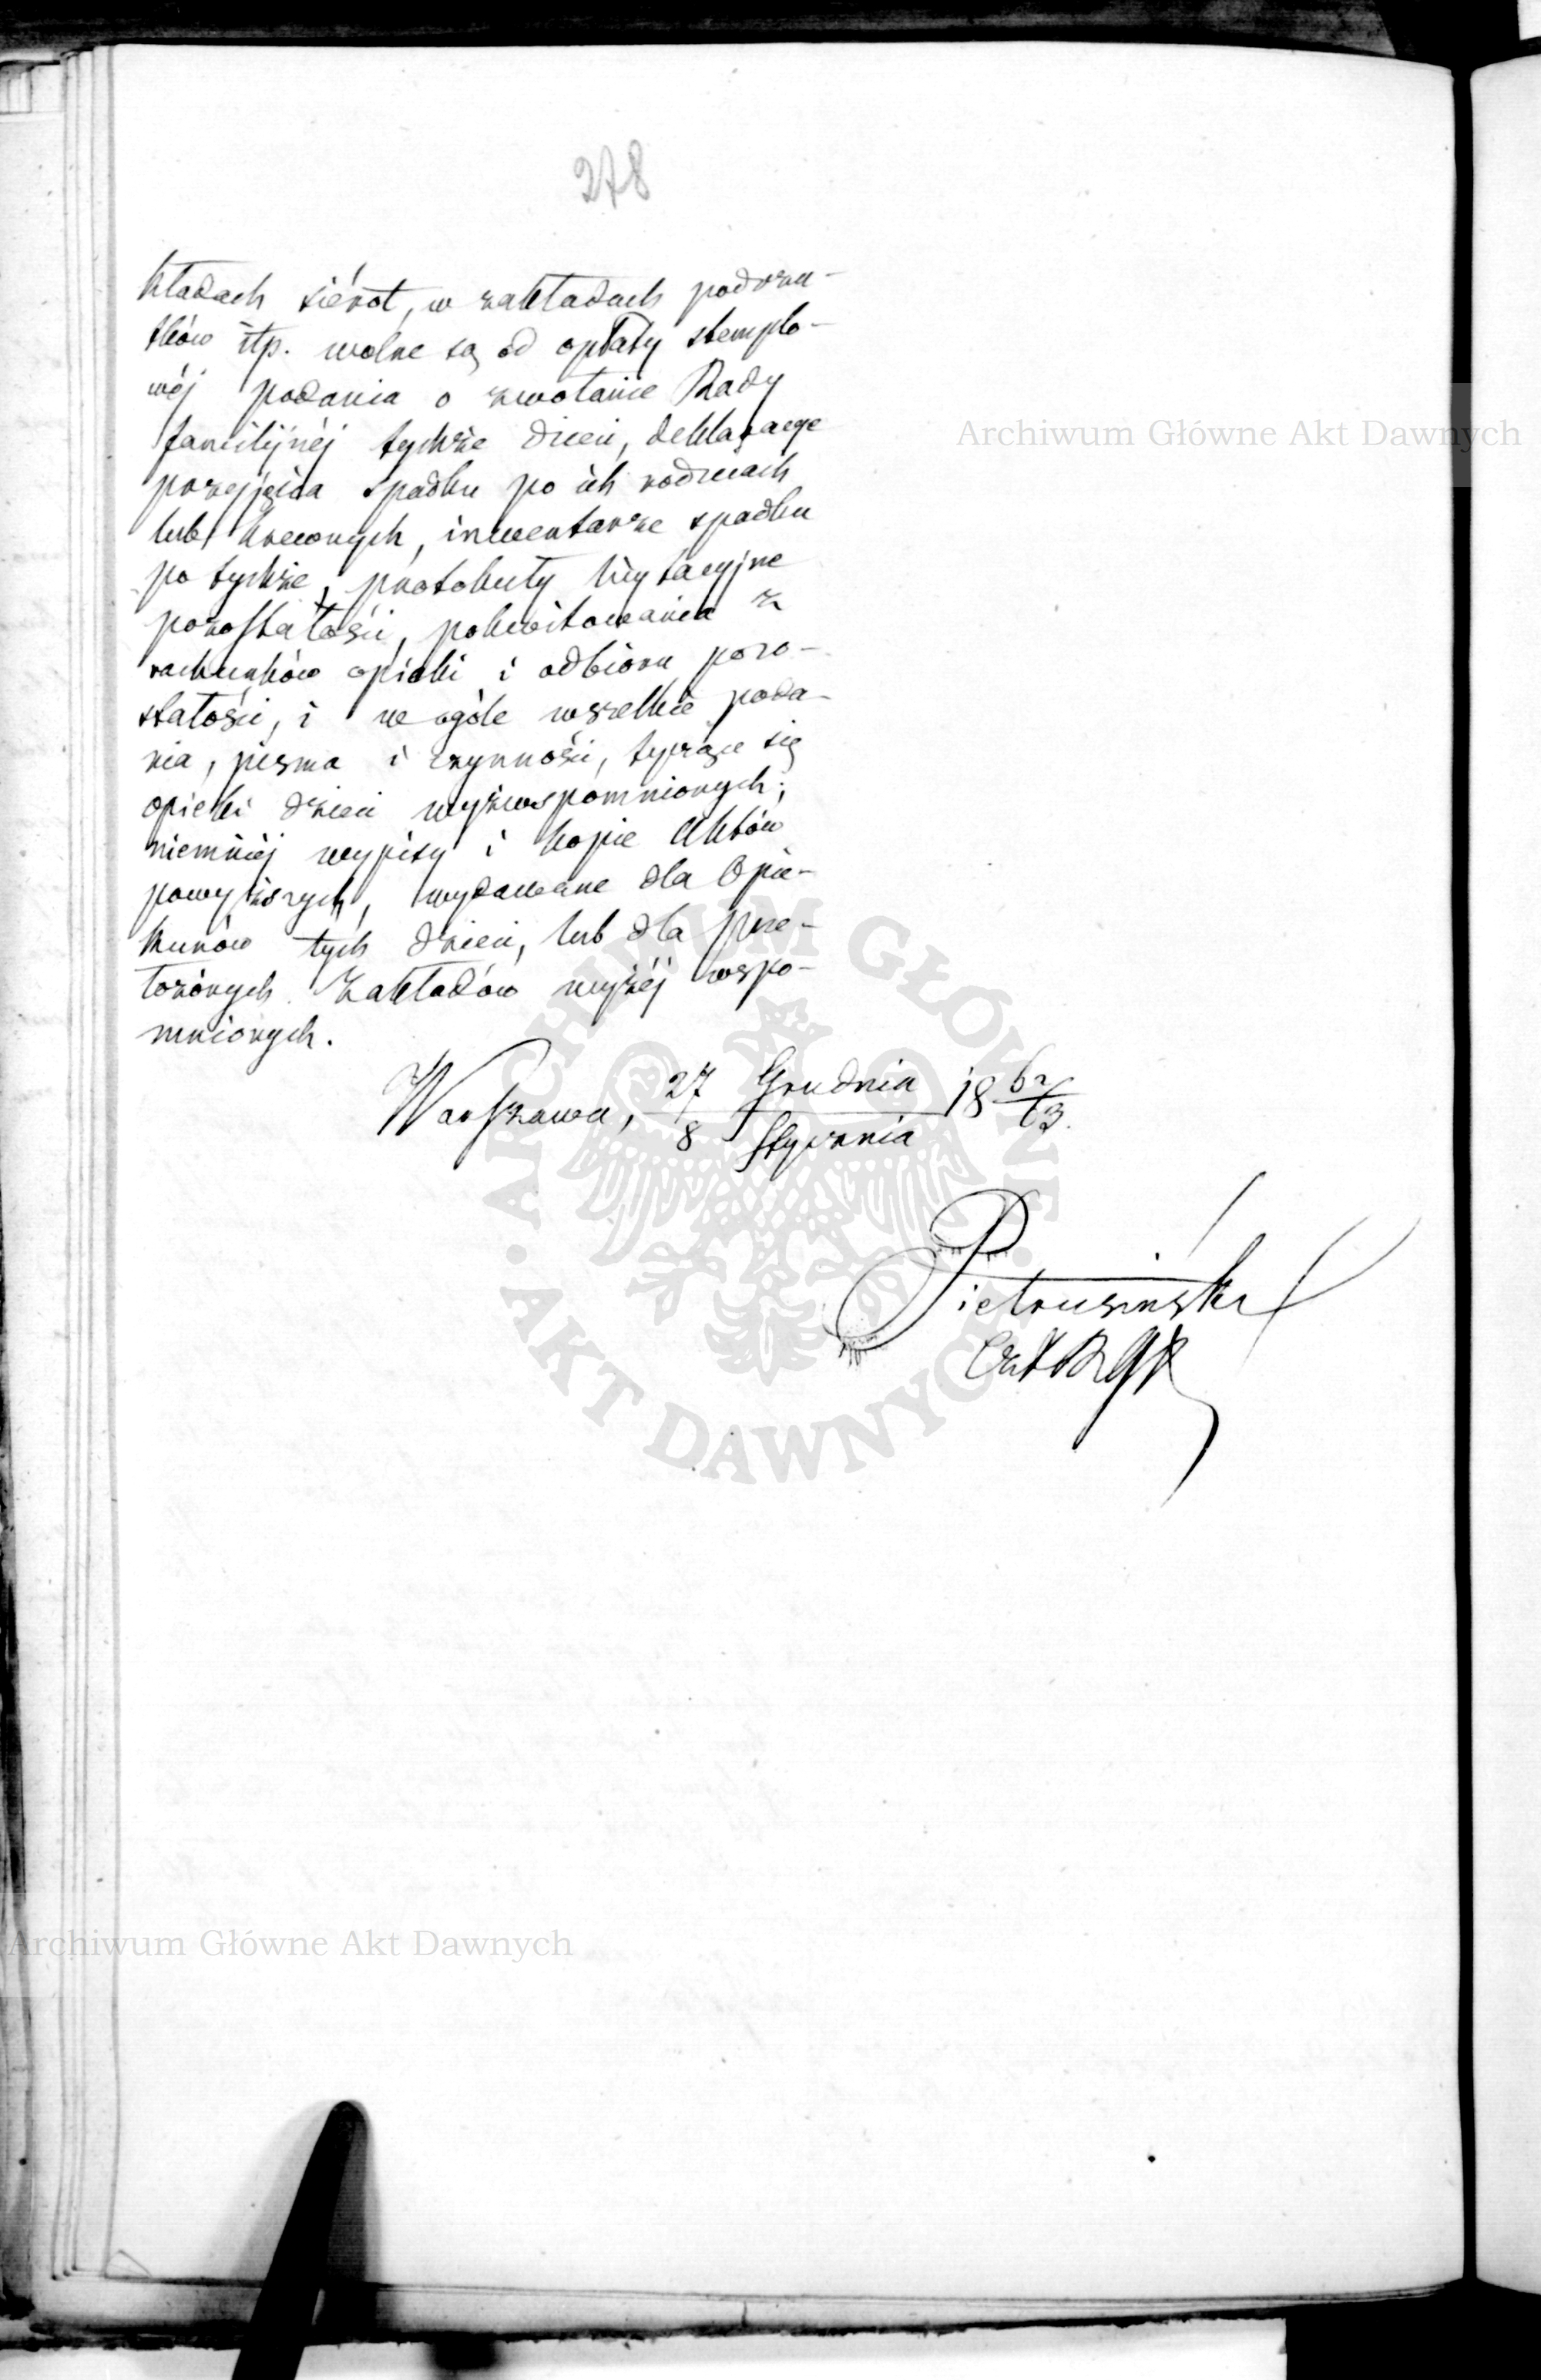 278
kładach siérot, w zakładach podrzu-
tków itp. wolne są od opłaty stemplo-
wéj podania o zwołanie Rady
familijnéj tychże dzieci, deklaracye
przyjęcia spadku po ich rodzicach
lub krewnych, inwentarze spadku
po tychże, protokuły licytacyjne
pozostałości, pokwitowania z
rachunków opieki i odbioru pozo-
stałości, i w ogóle wszelkie poda-
nia, pisma i czynności, tyczące się
opieki dzieci wyżwspomnionych;
niemniéj wypisy i kopie Aktów
powyższych, wydawane dla Opie-
kunów tych dzieci, lub dla prze-
łożonych Zakładów wyżéj wspo-
mnionych.
Warszawa, 27 Grudnia 1862
8 Stycznia 63.
Pietrusiński
Archiwum Główne Akt Dawnych
ARCHIWUM GŁÓWNE
AKT DAWNYCH
Archiwum Główne Akt Dawnych